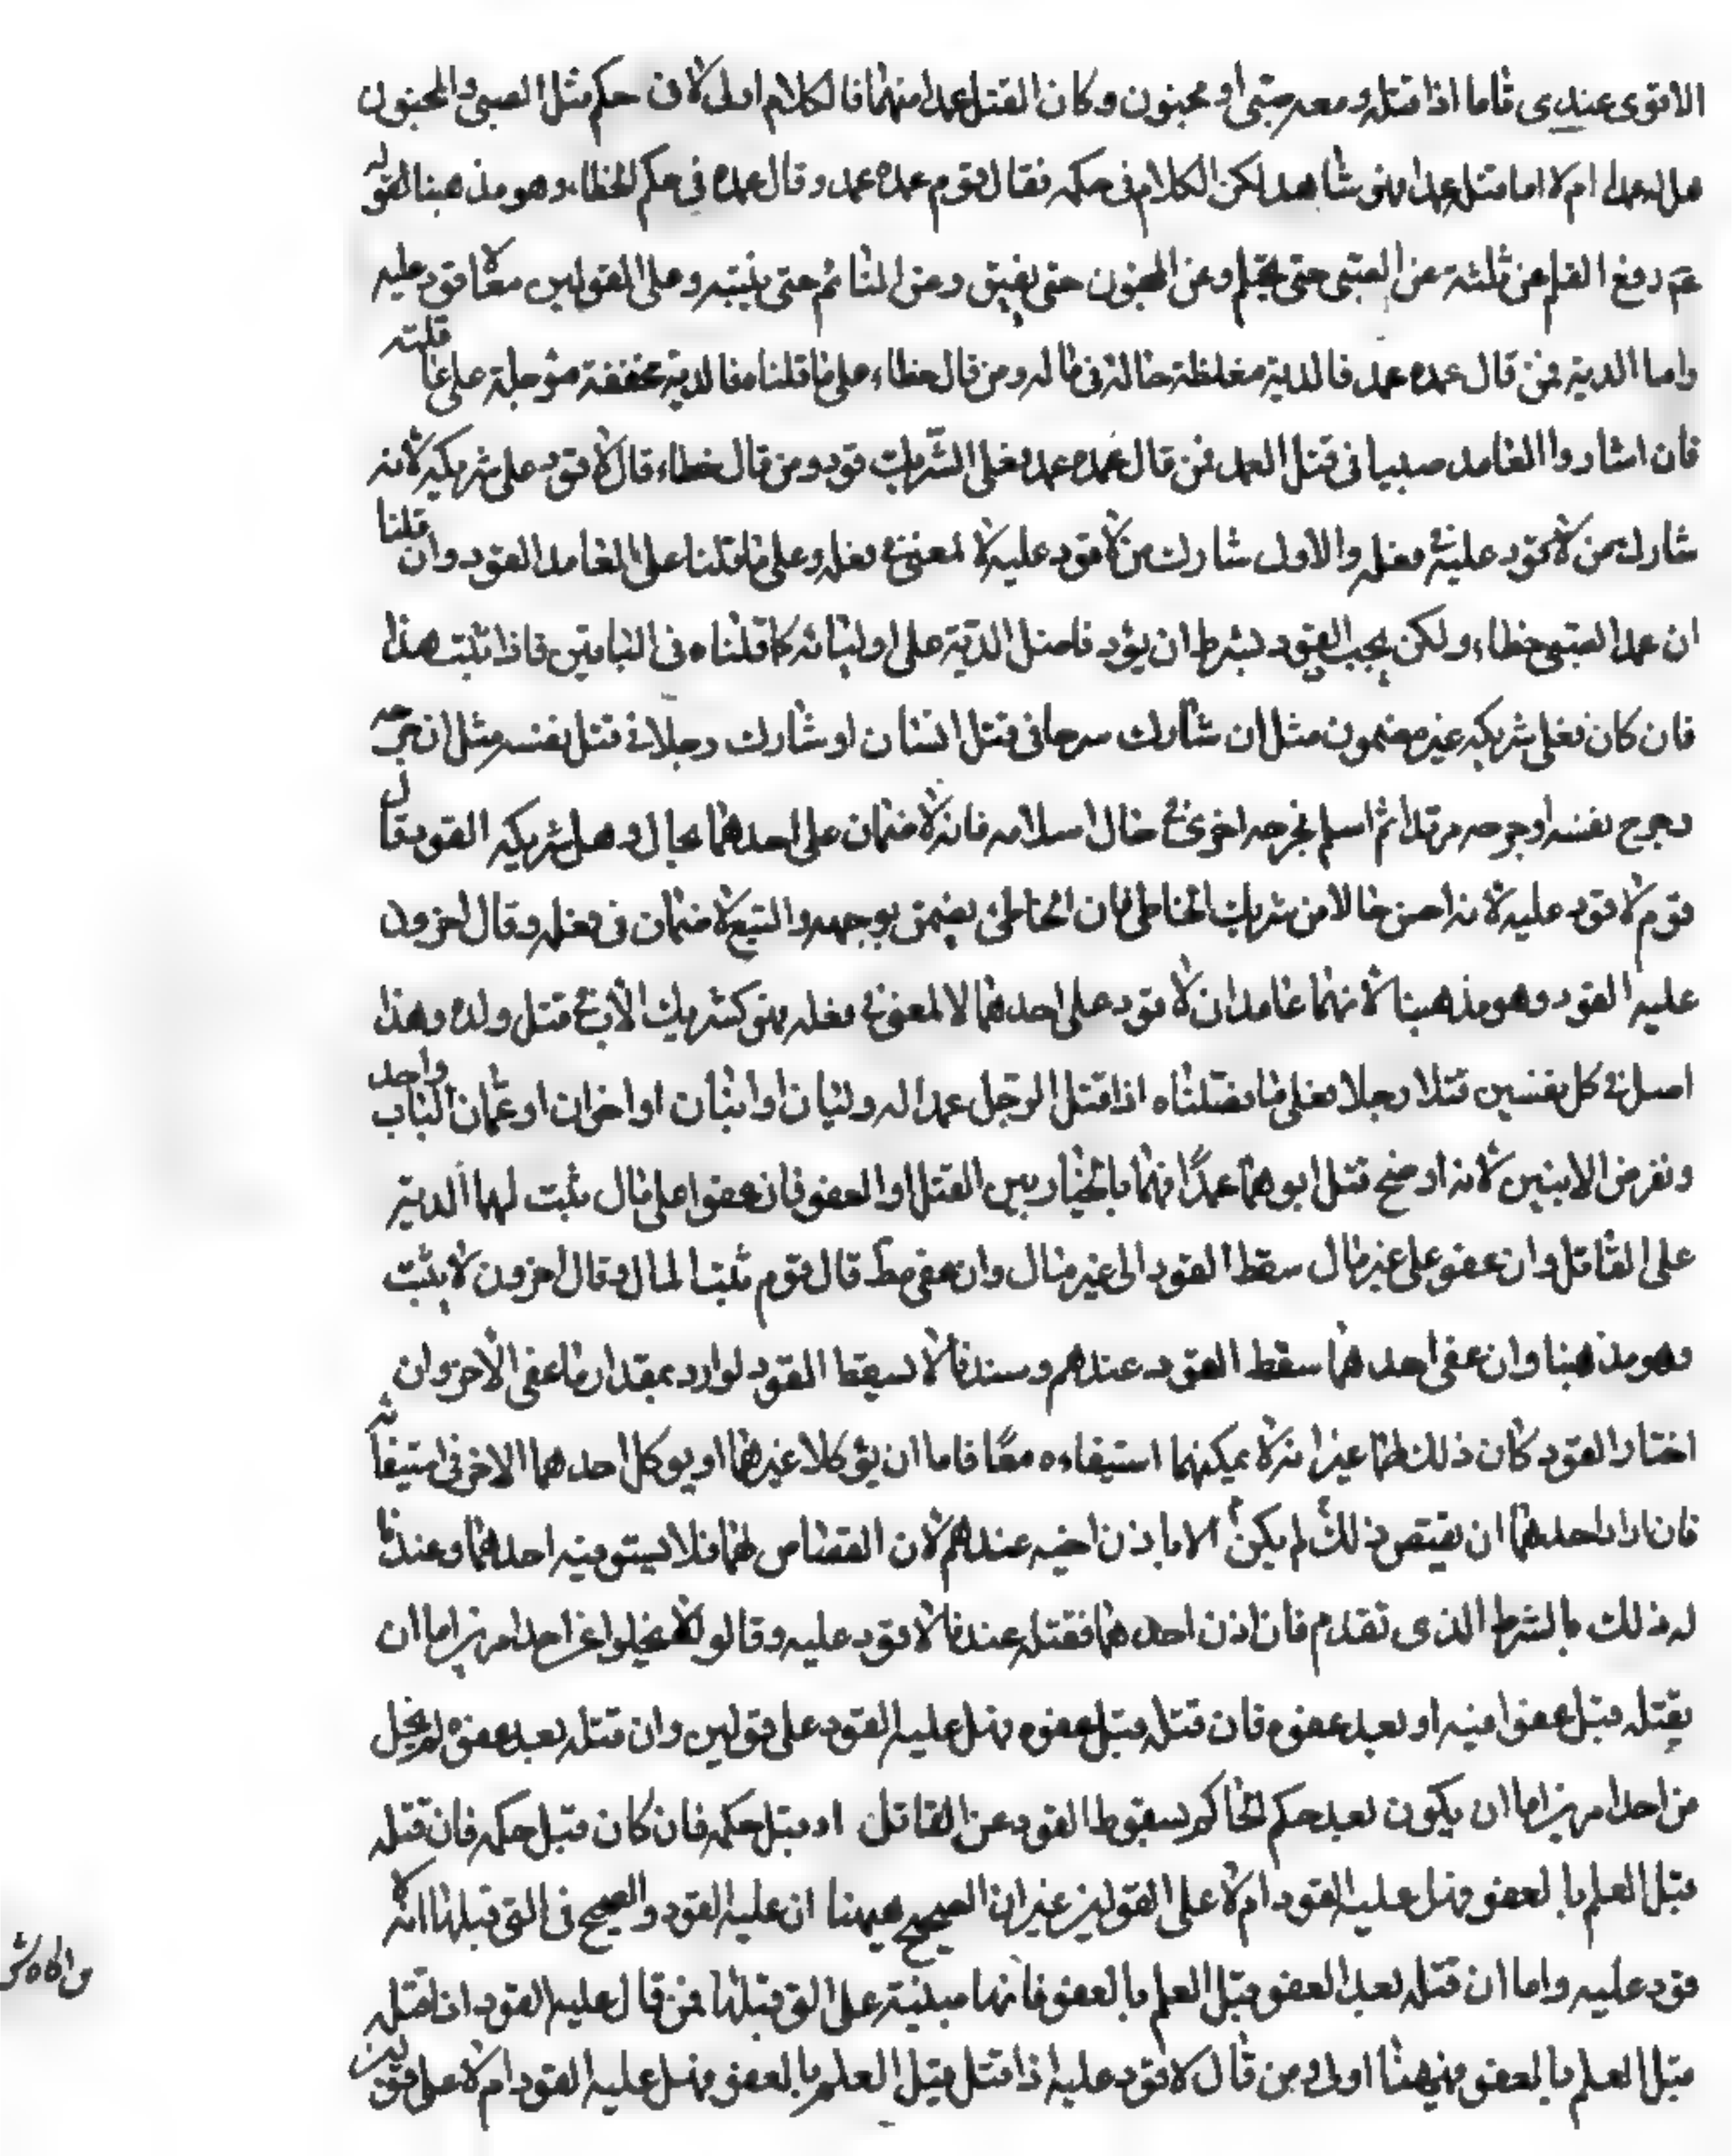 الاقوى عندى فاما اذا قتله ومعه صبى او مجنون وكان القتل عمدا منهما فالكلام اولى لان حكم مثل الصبى والمجنون
هل له عمدا ام لا اما قتل عمدا فهو شاهد لكن الكلام فى حكمه فقال قوم عمده عمد وقال عمده فى حكم الخطاء وهو مذهبنا لقوله
عم رفع القلم عن ثلثة عن الصبى حتى يحتلم وعن المجنون حتى يفيق وعن النائم حتى ينتبه وعلى القولين معا لا قود عليه
واما الدية فمن قال عمده عمد فالدية مغلظة حالة فى ماله ومن قال خطاء على ما قلنا فالدية مخففة مؤجلة على عاقلته
فان شارك العامد صبيا فى قتل العمد فمن قال عمده عمد فعلى الشريك قود ومن قال خطاء قال لا قود على شريكه لانه
شارك من لا قود عليه فى فعله والاول شارك من لا قود عليه لا لمعنى فى فعله وعلى ما قلنا على العامد القود وان قلنا
ان عمد الصبى خطاء ولكن يجب القود بشرط ان يؤد فاضل الدية على اوليائه كما قلناه فى العامدين فاذا ثبت هذا
فان كان فعل شريكه غير مضمون مثل ان شارك سبعا فى قتل انسان او شارك رجلا فى قتل نفسه مثل ان جرحه
وجرح نفسه او جرحه مرتدا ثم اسلم فجرحه اخرى فى حال اسلامه فانه لا ضمان على احدهما بحال وهل شريكه القود قال
قوم لا قود عليه لانه احسن حالا من شريك الخاطى فان الخاطى يضمن بوجهه والسبع لا ضمان فى فعله وقال اخرون
عليه القود وهو مذهبنا لانهما عامدان لا قود على احدهما لا لمعنى فى فعله فهو كشريك الاب فى قتل ولده وهذا
اصل فى كل نفسين قتلا رجلا فعلى ما فصلناه اذا قتل الرجل عمدا له وليان او ابنان او اخوان او عمان الباب واحد
ونفرض الابنين لانه اوضح قتل ابوهما عمدًا فهما بالخيار بين القتل او العفو فان عفوا على مال ثبت لهما الدية
على القاتل وان عفو على غير مال سقط القود الى غير مال وان عفى مط قال قوم ثبت المال وقال اخرون لا يثبت
وهو مذهبنا وان عفى احدهما سقط القود عندهم وعندنا لا يسقط القود لو ارد بمقدار ما عفى الاخر وان
اختار القود كان ذلك لهما غير انه لا يمكنهما استيفاءه معًا فاما ان يوكلا غيرهما او يوكل احدهما الاخر فى استيفائه
فان اراد احدهما ان يقتص ذلك لم يكن الا باذن اخيه عندهم لان القصاص لهما فلا يستوفيه احدهما وعندنا
له ذلك بالشرط الذى تقدم فان اذن احدهما فقتله عندنا لا قود عليه وقالوا لا يخلوا عن احد امرين اما ان
يقتله قبل عفو اخيه او بعد عفوه فان قتله قبل عفوه فهل عليه القود على قولين وان قتله بعد عفوه لم يخل
من احد امرين اما ان يكون بعد حكم الحاكم بسقوط القود عن القاتل او قبل حكمه فان كان قبل حكمه فان قتله
قبل العلم بالعفو فهل عليه القود ام لا على القولين غير ان الصحيح هيهنا ان عليه القود والصحيح فى التى قبلها انه لا
قود عليه واما ان قتله بعد العفو قبل العلم بالعفو فانها مبنية على التى قبلها فمن قال عليه القود اذا قتله
قبل العلم بالعفو فهيهنا اولى ومن قال لا قود عليه اذا قتل قبل العلم بالعفو فهل عليه القود ام لا على قولين